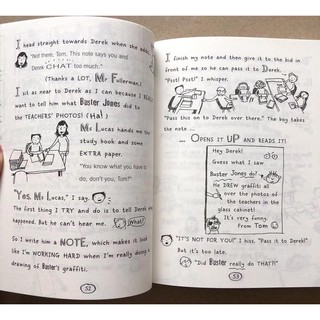 I head straight towards Derek when she adds,
"Not there, Tom. This note says you and
Derek CHAT too much."
(Thanks a LOT, Mr Fullerman.)
I sit as near to Derek as I can because I REALLY
want to tell him what Buster Jones did to
the TEACHERS' PHOTOS! (Ha!)
Mrs Lucas hands me
study book and some
EXTRA paper.
"You know what you have to
do, don't you, Tom?"
"Yes, Mrs Lucas," I say.
The first thing I TRY and do is to tell Derek
happened. But he can't hear me.
What?
So I write him a NOTE, which makes it look
like I'm WORKING HARD when I'm really doing a
drawing of Buster's graffiti.
52
I finish my note and then give it to the kid in
front of me so he can pass it to Derek...
"Psst! Psst!" I whisper.
"Pass this on to Derek over there." The boy takes
the note ...
... OPENS it UP AND READS IT!
Hey Derek!
Guess what I saw
Buster Jones do?
He DREW graffiti all
over the photos of
the teachers in the
glass cabinet!
It's very funny.
From Tom
"IT'S NOT FOR YOU!" I hiss. "Pass it to Derek!"
But it's too late.
"Did Buster really do THAT?"
53